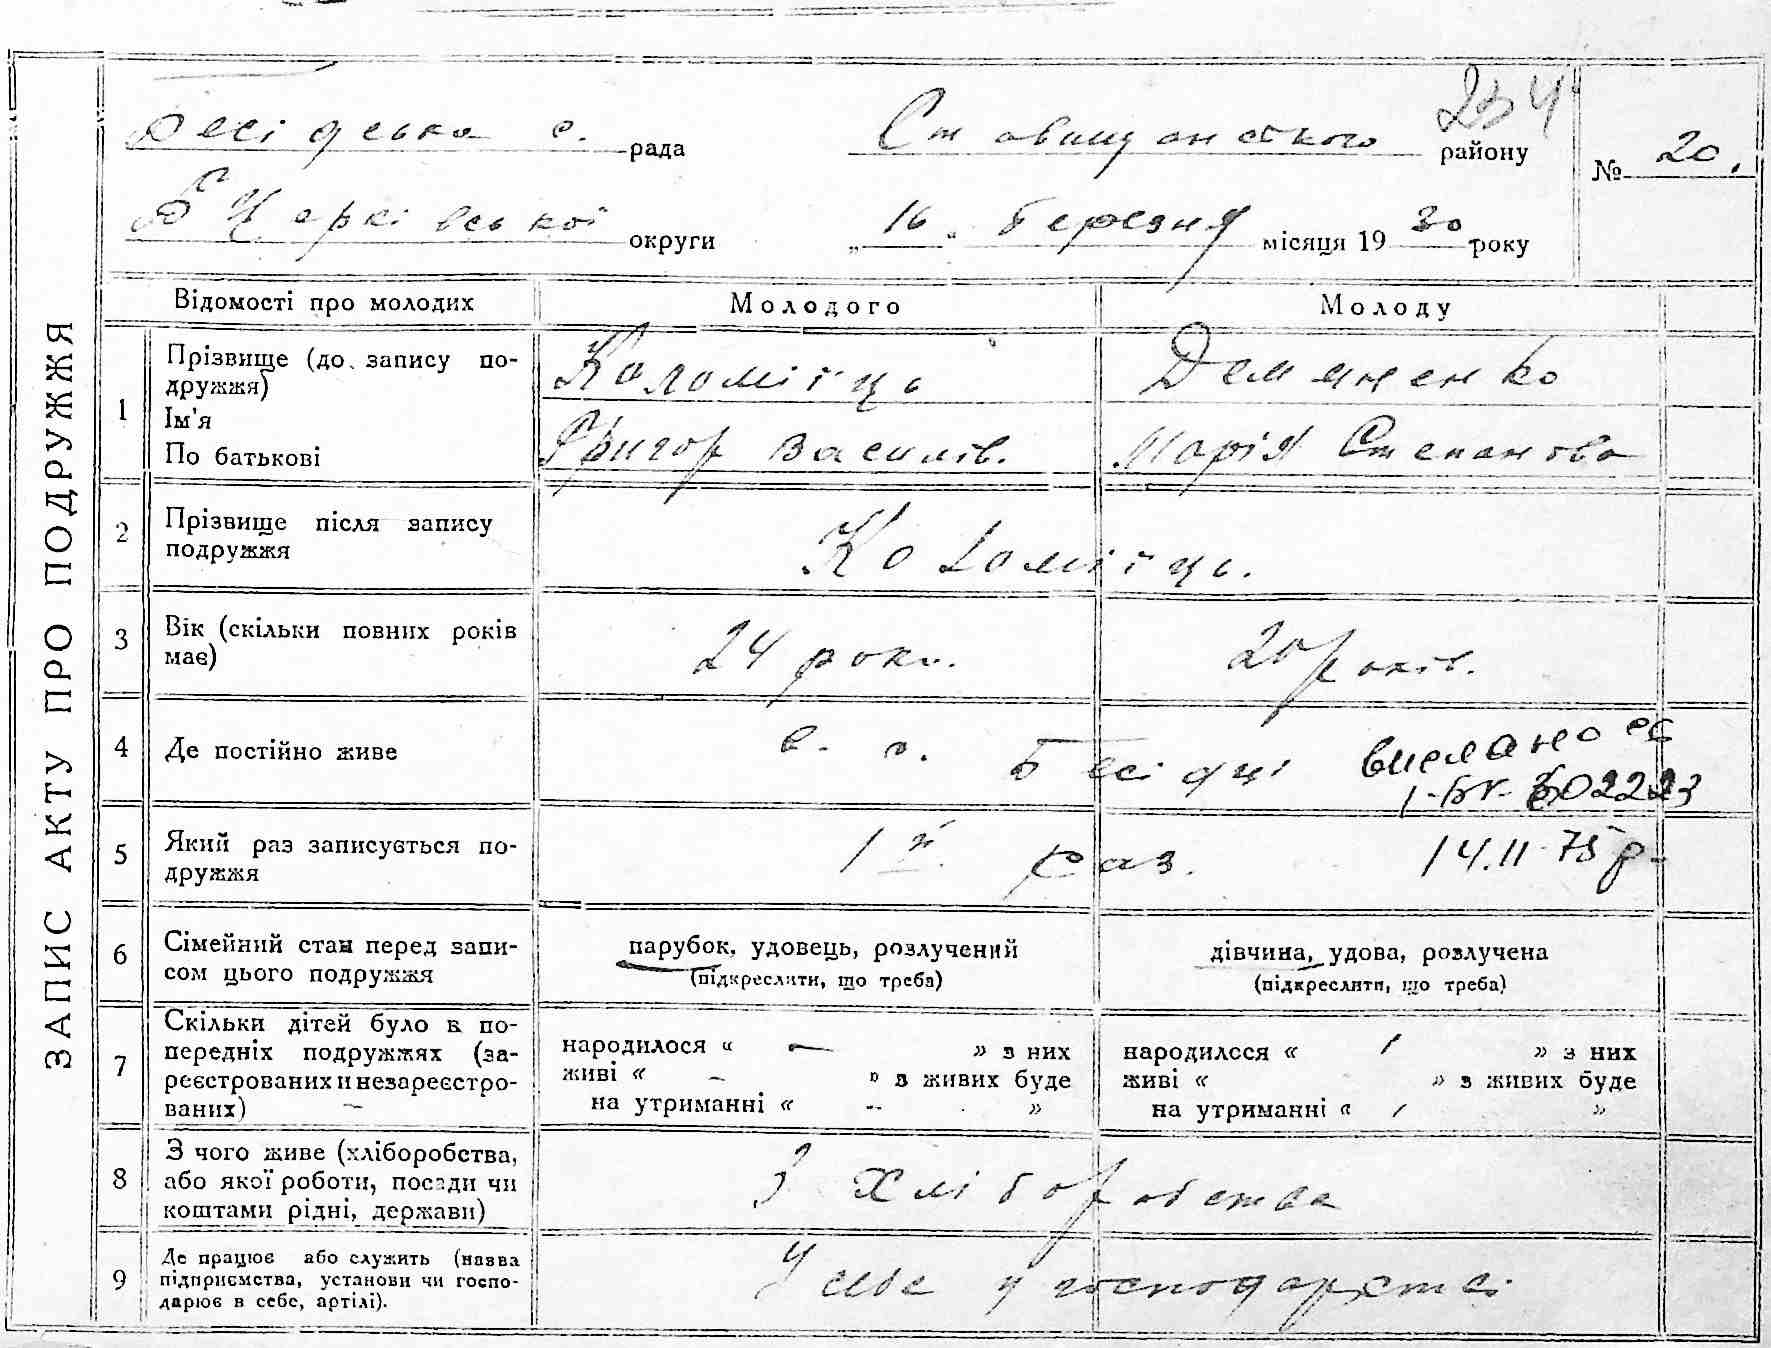 ЗАПИС АКТУ ПРО ПОДРУЖЖЯ
234
Бесідська с. рада Ставищанського району № 20.
Б Церківської округи „16" березня місяця 1930 року
Відомості про молодих Молодого Молоду
1 Прізвище (до запису подружжя) Коломієць Демяненко
Ім'я
По батькові Григор Василів. Марія Степанова
2 Прізвище після запису
подружжя Коломієць.
3 Вік (скільки повних років
має) 24 роки. 20 років.
4 Де постійно живе в. с. Бесідці
1-БК 302223
5 Який раз записується по-
дружжя 1й раз. 14.11.75 р.
6 Сімейний стан перед запи-
сом цього подружжя
парубок, удовець, розлучений дівчина, удова, розлучена
(підкреслити, що треба) (підкреслити, що треба)
7 Скільки дітей було в по-
передніх подружжях (за-
реєстрованих и незареєстро-
ваних)
народилося « — » з них народилося « / » з них
живі « – » з живих буде живі « » з живих буде
на утриманні « -- » на утриманні « / »
8 З чого живе (хліборобства,
або якої роботи, посади чи
коштами рідні, держави) З хліборобства
9 Де працює або служить (назва
підприємства, установи чи госпо-
дарює в себе, артілі). У себе у господарстві